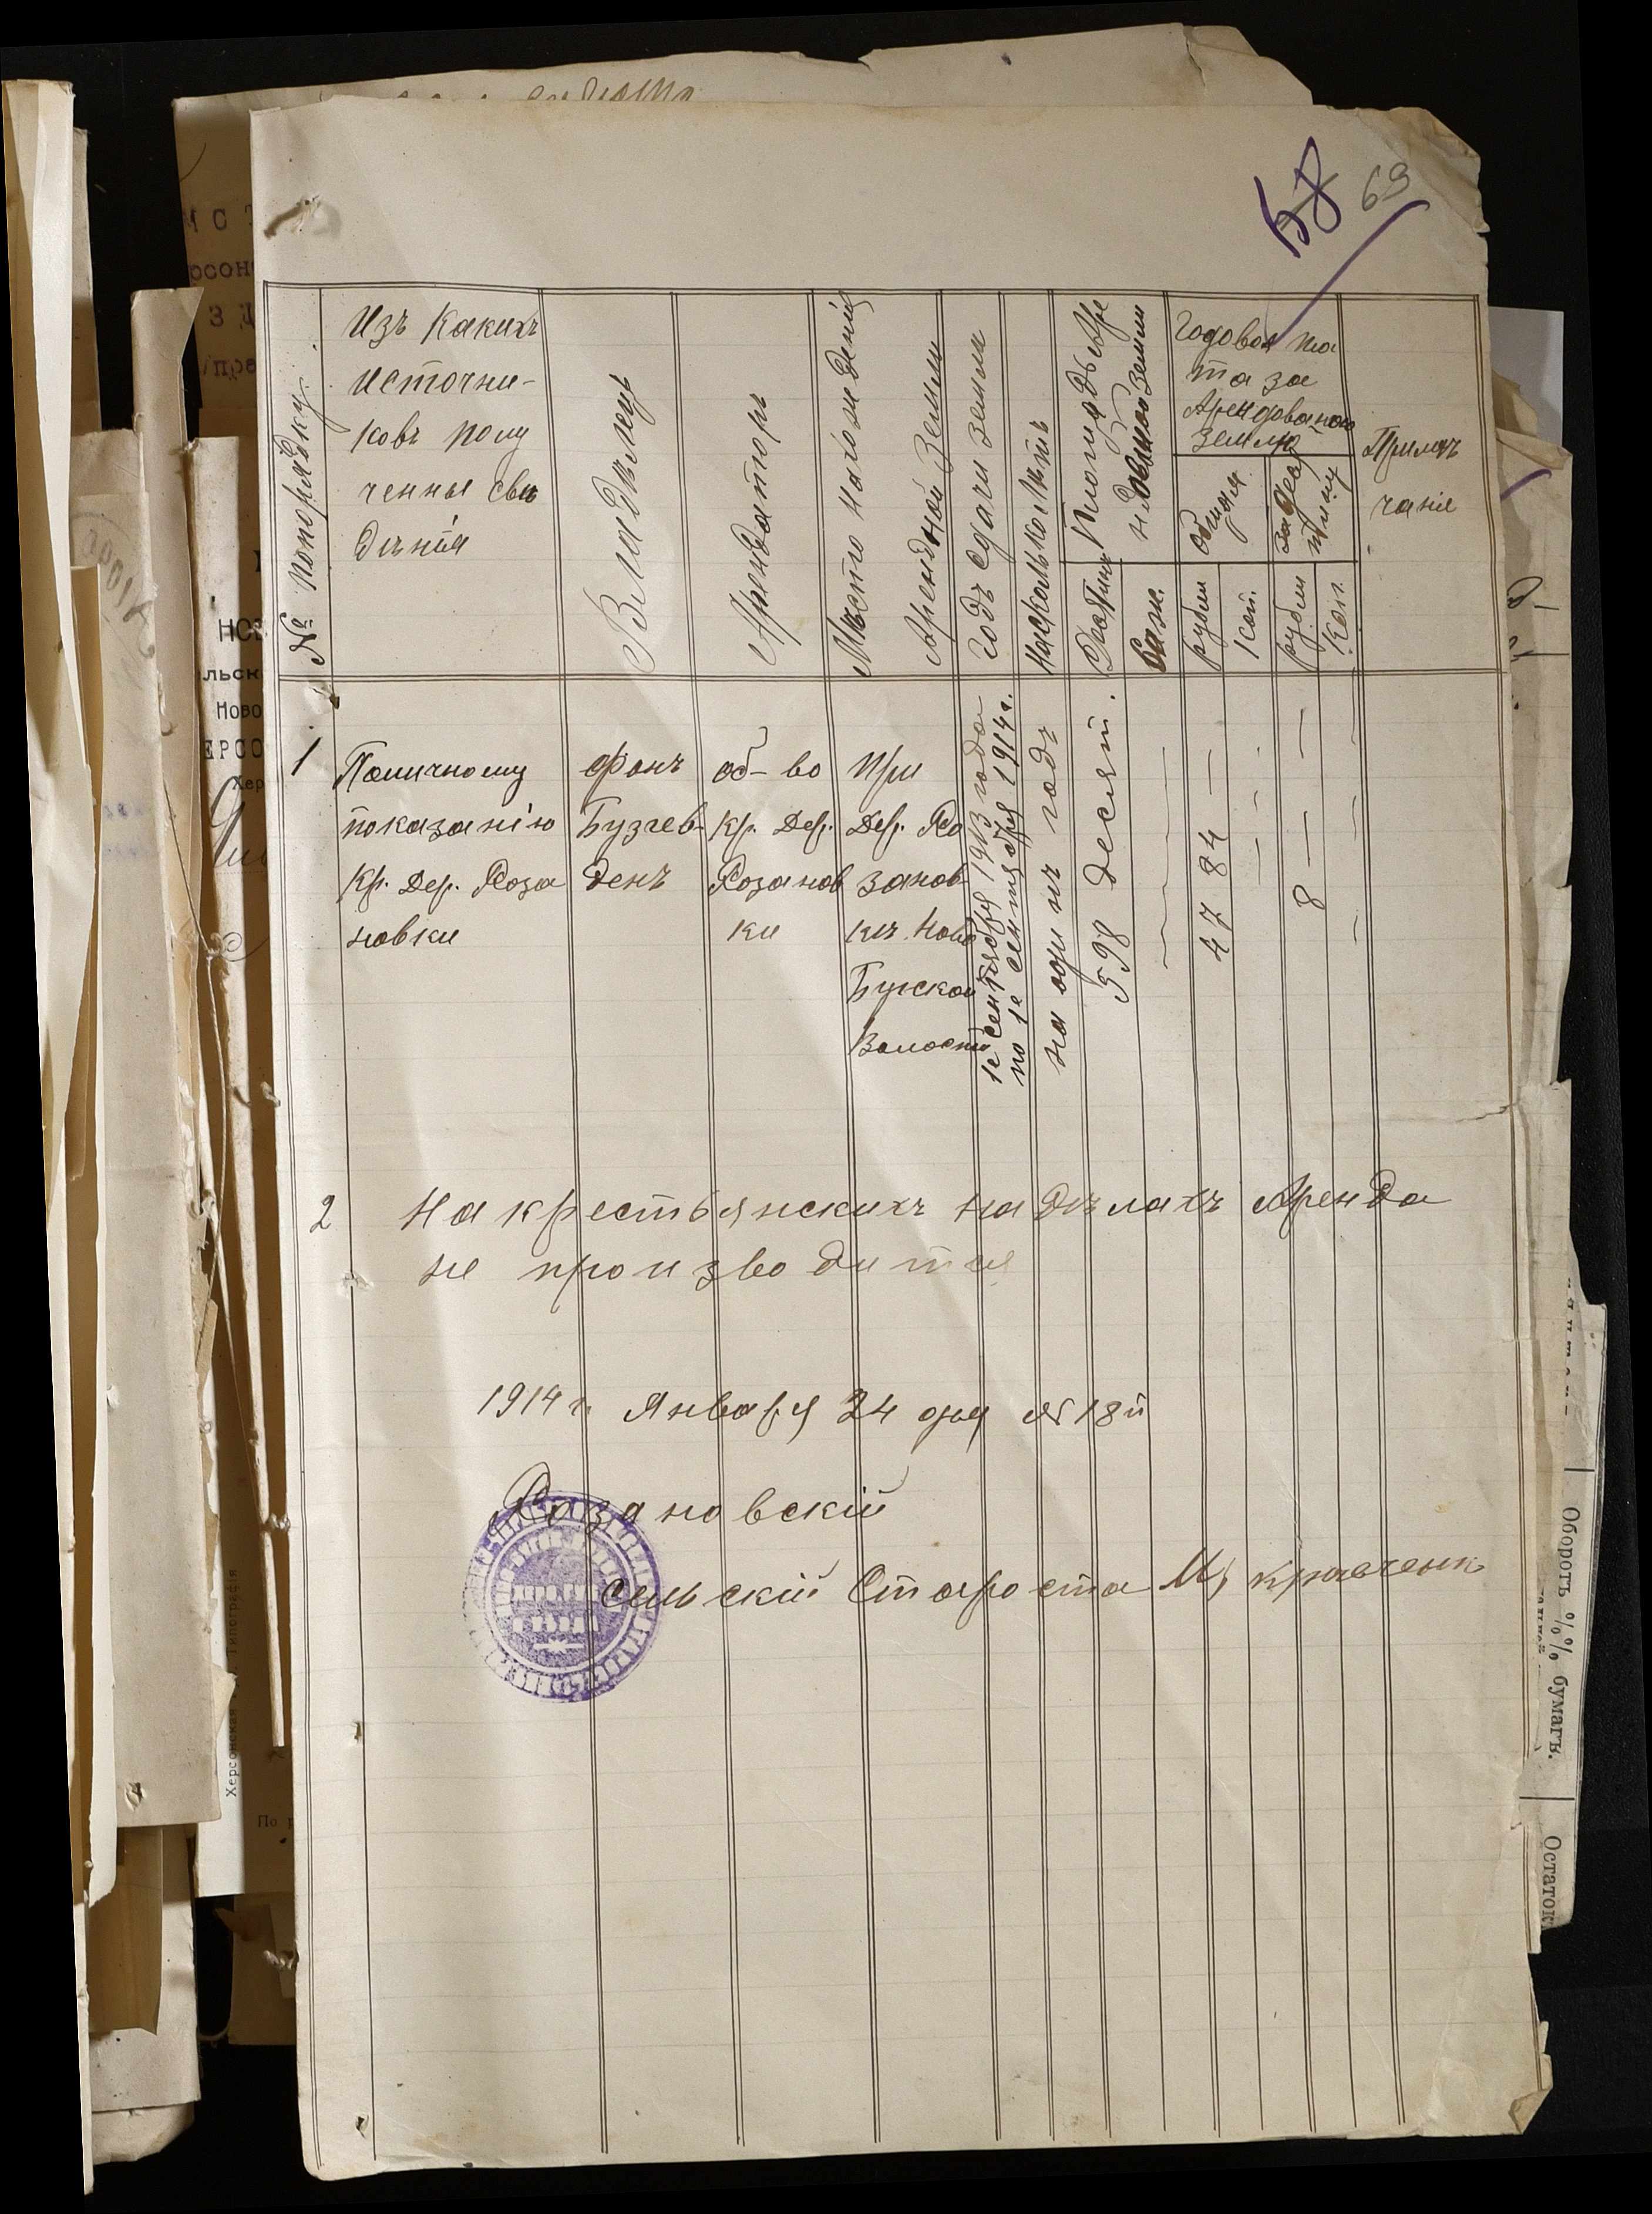 58 63
№ по порядку
Изъ какихъ
источни-
ковъ полу
ченны свѣ
дѣнія
Владѣлецъ
Арендаторъ
Мѣсто нахожденій
Арендной Земли
Годъ сдачи земли
На сколько лѣтъ
Площадь Аре
ндованой Земли
Десятин
Саж.
Годовая пла
та за
Арендованою
землю
общая
за деся
тину
рубли
коп.
рубли
Коп.
Примѣ
чаніе
1
По личному
показанію
Кр. Дер. Роза
новки
фонъ
Бузгев-
денъ
об-во
Кр. Дер.
Розанов
ки
При
Дер. Ро
занов
кѣ Ново
Бугской
Волости
1е сентября 1913 года
по 1е сентября 1914 г.
на одинъ годъ
598 десят.
4784
8
2
На крестьянскихъ надѣлахъ Аренда
не производится
1914 г. Января 24 дня № 18й
Розановскій
Сельскій Староста И. Кравченко
Оборотъ %% бумагъ.
Остаток